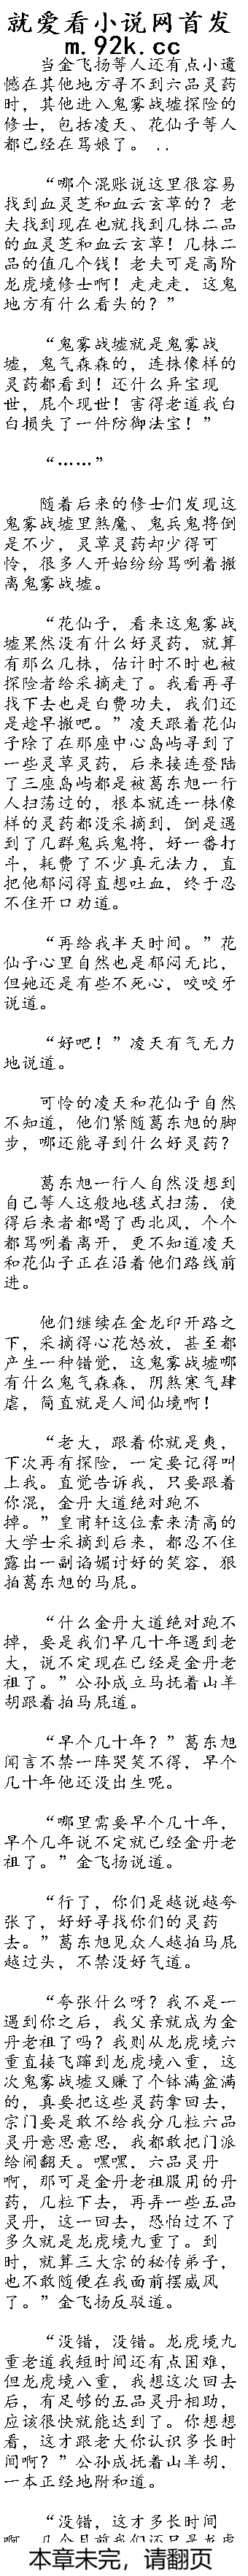 就爱看小说网首发
m.92k.cc
当金飞扬等人还有点小遗
憾在其他地方寻不到六品灵药
时，其他进入鬼雾战墟探险的
修士，包括凌天、花仙子等人
都已经在骂娘了。 ..
“哪个混账说这里很容易
找到血灵芝和血云玄草的？老
夫找到现在也就找到几株二品
的血灵芝和血云玄草！几株二
品的值几个钱！老夫可是高阶
龙虎境修士啊！走走走，这鬼
地方有什么看头的？”
“鬼雾战墟就是鬼雾战
墟，鬼气森森的，连株像样的
灵药都看到！还什么异宝现
世，屁个现世！害得老道我白
白损失了一件防御法宝！”
“……”
随着后来的修士们发现这
鬼雾战墟里煞魔、鬼兵鬼将倒
是不少，灵草灵药却少得可
怜，很多人开始纷纷骂咧着撤
离鬼雾战墟。
“花仙子，看来这鬼雾战
墟果然没有什么好灵药，就算
有那么几株，估计时不时也被
探险者给采摘走了。我看再寻
找下去也是白费功夫，我们还
是趁早撤吧。”凌天跟着花仙
子除了在那座中心岛屿寻到了
一些灵草灵药，后来接连登陆
了三座岛屿都是被葛东旭一行
人扫荡过的，根本就连一株像
样的灵药都没采摘到，倒是遇
到了几群鬼兵鬼将，好一番打
斗，耗费了不少真元法力，直
把他郁闷得直想吐血，终于忍
不住开口劝道。
“再给我半天时间。”花
仙子心里自然也是郁闷无比，
但她还是有些不死心，咬咬牙
说道。
“好吧！”凌天有气无力
地说道。
可怜的凌天和花仙子自然
不知道，他们紧随葛东旭的脚
步，哪还能寻到什么好灵药？
葛东旭一行人自然没想到
自己等人这般地毯式扫荡，使
得后来者都喝了西北风，个个
都骂咧着离开，更不知道凌天
和花仙子正在沿着他们路线前
进。
他们继续在金龙印开路之
下，采摘得心花怒放，甚至都
产生一种错觉，这鬼雾战墟哪
有什么鬼气森森，阴煞寒气肆
虐，简直就是人间仙境啊！
“老大，跟着你就是爽，
下次再有探险，一定要记得叫
上我。直觉告诉我，只要跟着
你混，金丹大道绝对跑不
掉。”皇甫轩这位素来清高的
大学士采摘到后来，都忍不住
露出一副谄媚讨好的笑容，狠
拍葛东旭的马屁。
“什么金丹大道绝对跑不
掉，要是我们早几十年遇到老
大，说不定现在已经是金丹老
祖了。”公孙成立马抚着山羊
胡跟着拍马屁道。
“早个几十年？”葛东旭
闻言不禁一阵哭笑不得，早个
几十年他还没出生呢。
“哪里需要早个几十年，
早个几年说不定就已经金丹老
祖了。”金飞扬说道。
“行了，你们是越说越夸
张了，好好寻找你们的灵药
去。”葛东旭见众人越拍马屁
越过头，不禁没好气道。
“夸张什么呀？我不是一
遇到你之后，我父亲就成为金
丹老祖了吗？我则从龙虎境六
重直接飞蹿到龙虎境八重，这
次鬼雾战墟又赚了个钵满盆满
的，真要把这些灵药拿回去，
宗门要是敢不给我分几粒六品
灵丹意思意思，我都敢把门派
给闹翻天。嘿嘿，六品灵丹
啊，那可是金丹老祖服用的丹
药，几粒下去，再弄一些五品
灵丹，这一回去，恐怕过不了
多久就是龙虎境九重了。到
时，就算三大宗的秘传弟子，
也不敢随便在我面前摆威风
了。”金飞扬反驳道。
“没错，没错。龙虎境九
重老道我短时间还有点困难，
但龙虎境八重，我想这次回去
后，有足够的五品灵丹相助，
应该很快就能达到了。你想想
看，这才跟老大你认识多长时
间啊？”公孙成抚着山羊胡，
一本正经地附和道。
“没错，这才多长时间
啊，几个月前我们还只是龙虎
本章未完，请翻页